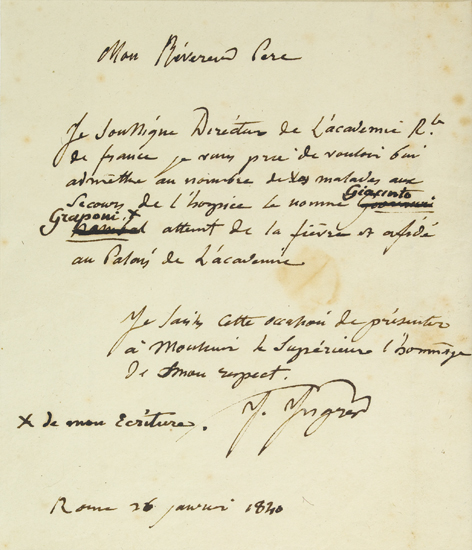 Mon Révérend Pere
Je Soussigné Directeur de L'academie Rle
de france je vous prie de vouloir bien
admettre au nombre de vos malades aux
Secours de l'hospice le nommé Giacinto
Graponi + attein de la fièvre et
au Palais de L'academie
Je Saisis cette occasion de présenter
à Monsieur le Supérieure l'hommage
de mon respect.
J. Ingres
X de mon Ecriture.
Rome 26 janvier 1840